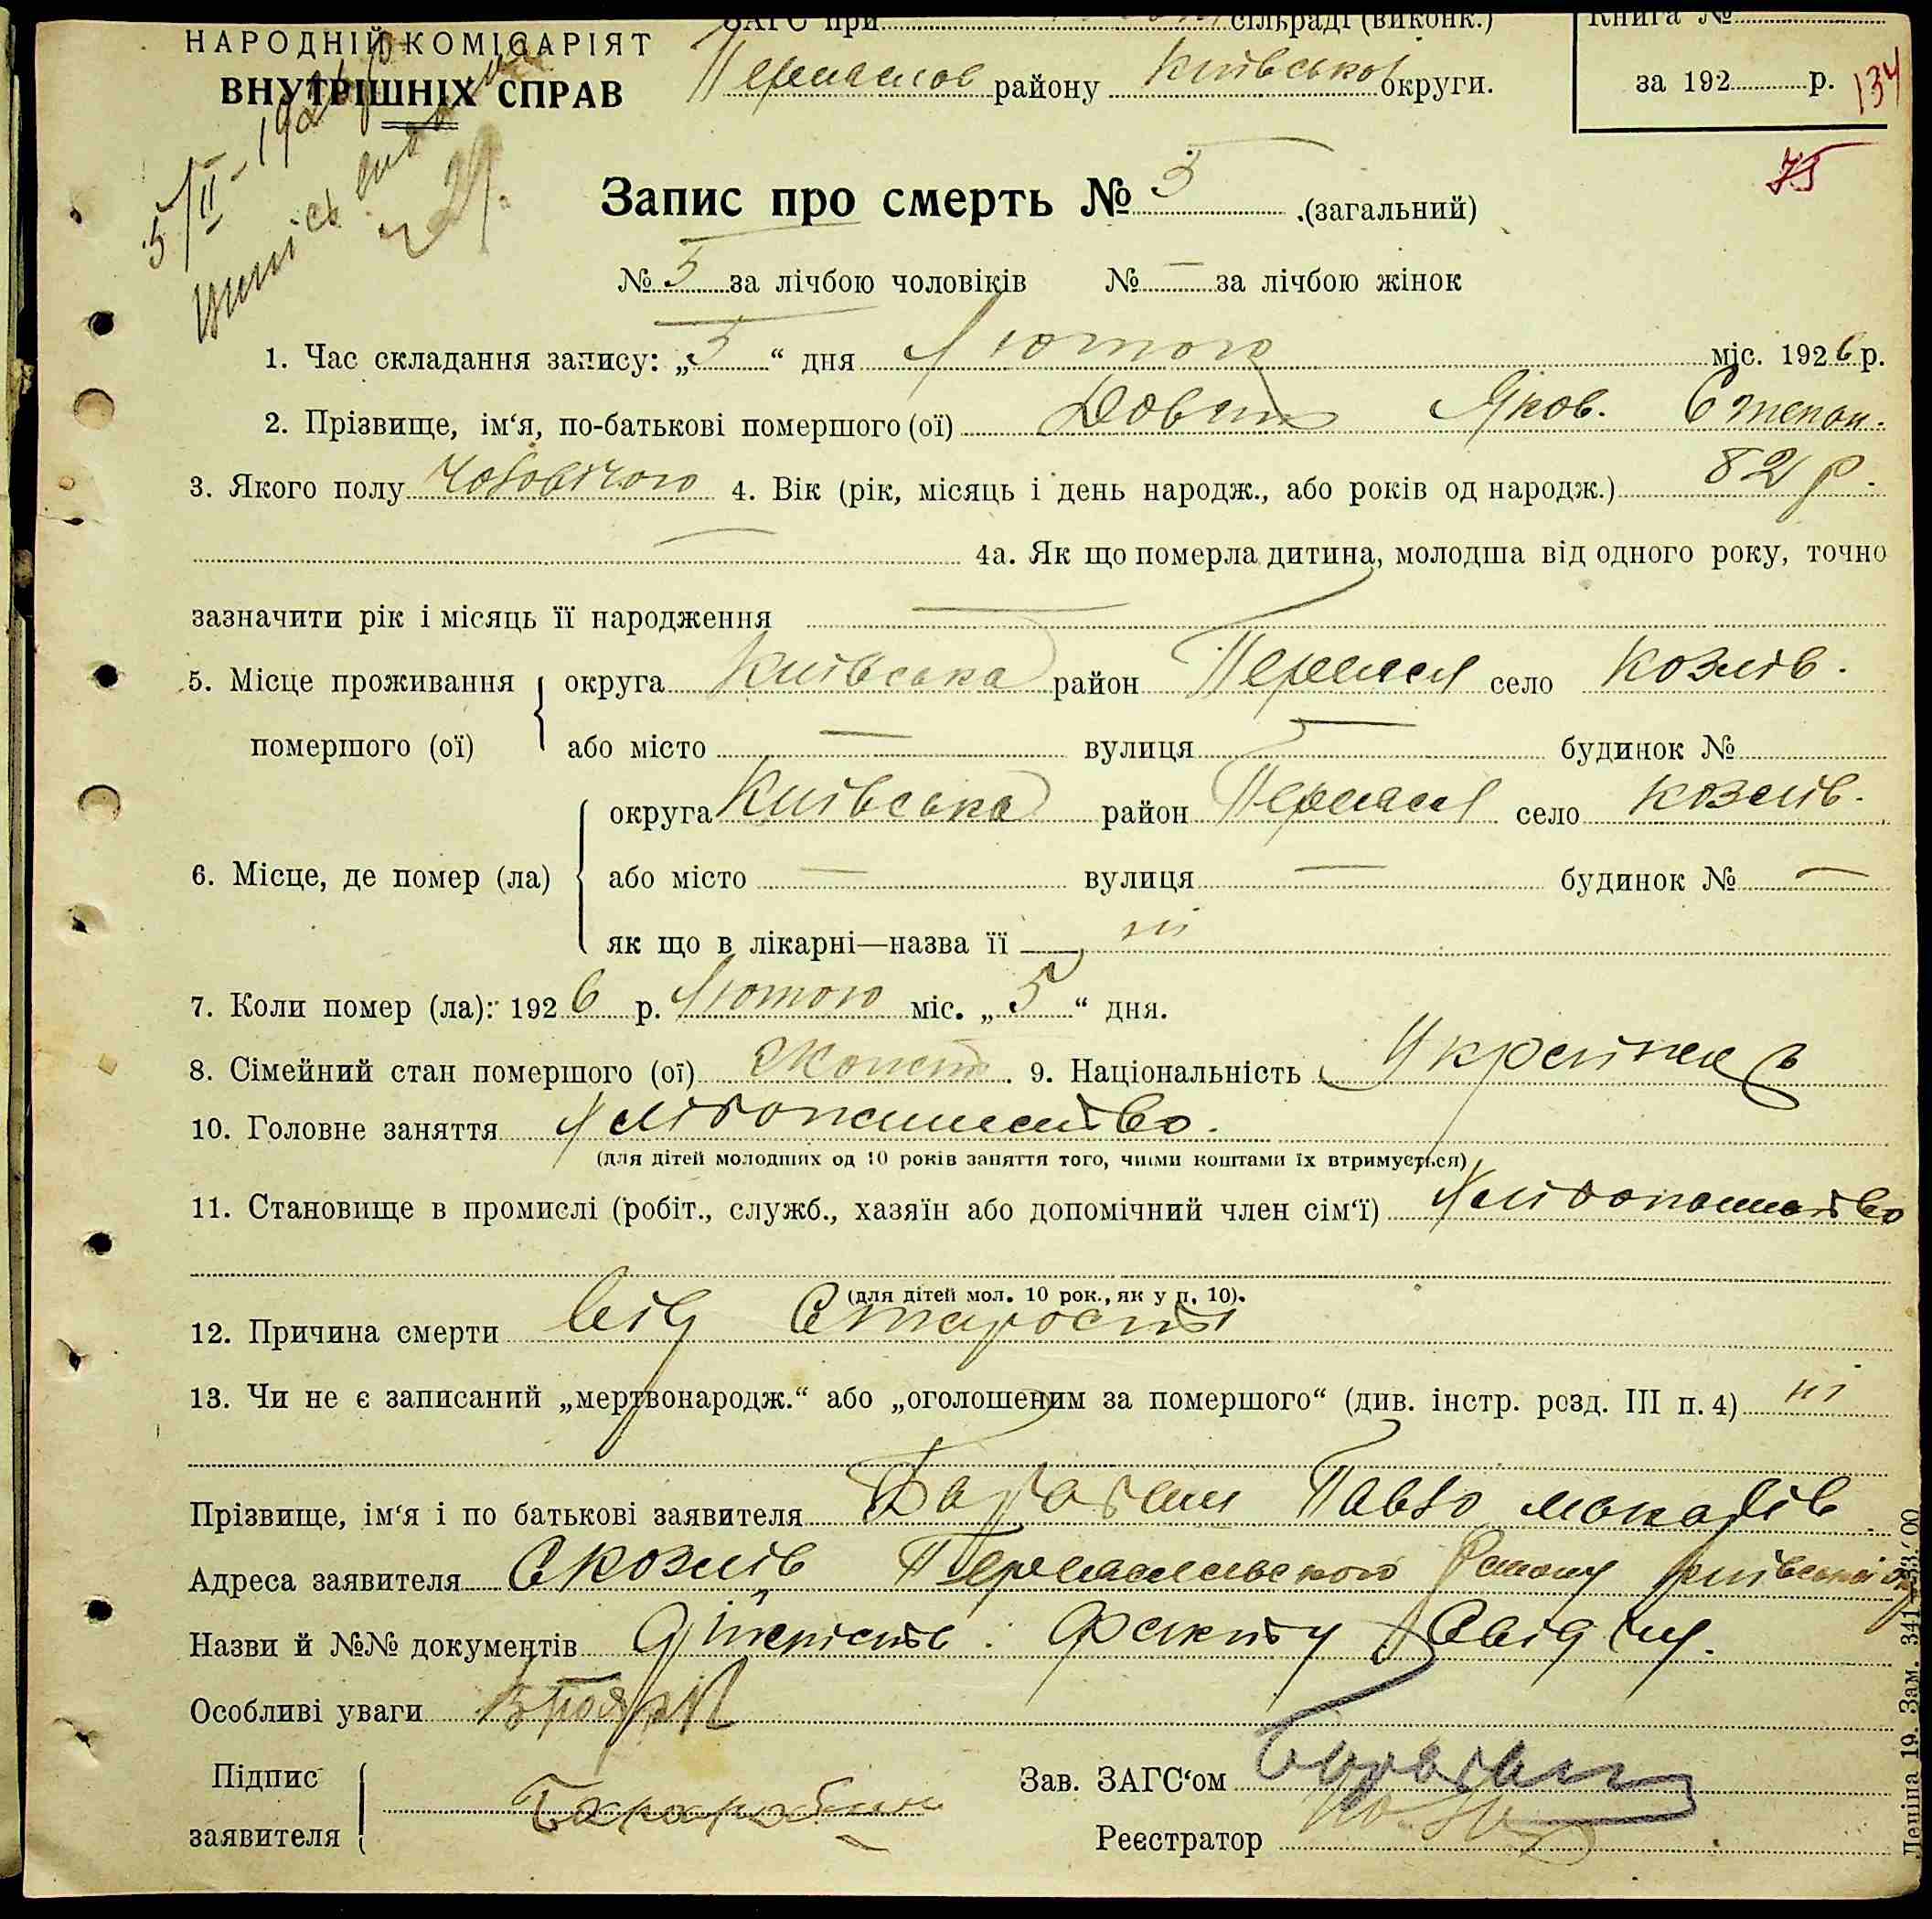 ЗАГС при сільраді (виконк.)
Книга №
НАРОДНІЙ КОМІСАРІЯТ
ВНУТРІШНІХ СПРАВ
району Київської округи.
за 192 р.
134
75
5/II-1926 р.
Запис про смерть № 5 (загальний)
№ 5 за лічбою чоловіків № — за лічбою жінок
1. Час складання запису: „5“ дня Лютого міс. 1926 р.
2. Прізвище, ім‘я, по-батькові помершого (ої) Яков. Степан.
3. Якого полу Чоловічого 4. Вік (рік, місяць і день народж., або років од народж.) 82 р.
— 4а. Як що померла дитина, молодша від одного року, точно
зазначити рік і місяць її народження —
5. Місце проживання округа Київська район Переясл село Козлів.
помершого (ої) або місто — вулиця — будинок №
6. Місце, де помер (ла) округа Київська район Переясл село Козлів.
або місто — вулиця — будинок № —
як що в лікарні—назва її ні
7. Коли помер (ла): 1926 р. Лютого міс. „5“ дня.
8. Сімейний стан помершого (ої) 9. Національність Українец
10. Головне заняття Хліборобство.
(для дітей молодших од 10 років заняття того, чиїми коштами їх втримується)
11. Становище в промислі (робіт., служб., хазяїн або допомічний член сім‘ї)
(для дітей мол. 10 рок., як у п. 10).
12. Причина смерти від Старости
13. Чи не є записаний „мертвонародж.“ або „оголошеним за помершого“ (див. інстр. розд. III п. 4) ні
Прізвище, ім‘я і по батькові заявителя Павло
Адреса заявителя С Козлів Переяславського Району Київської
Назви й №№ документів
Особливі уваги
Підпис
заявителя
Зав. ЗАГС‘ом
Реєстратор
Леніна 19. Зам. 341